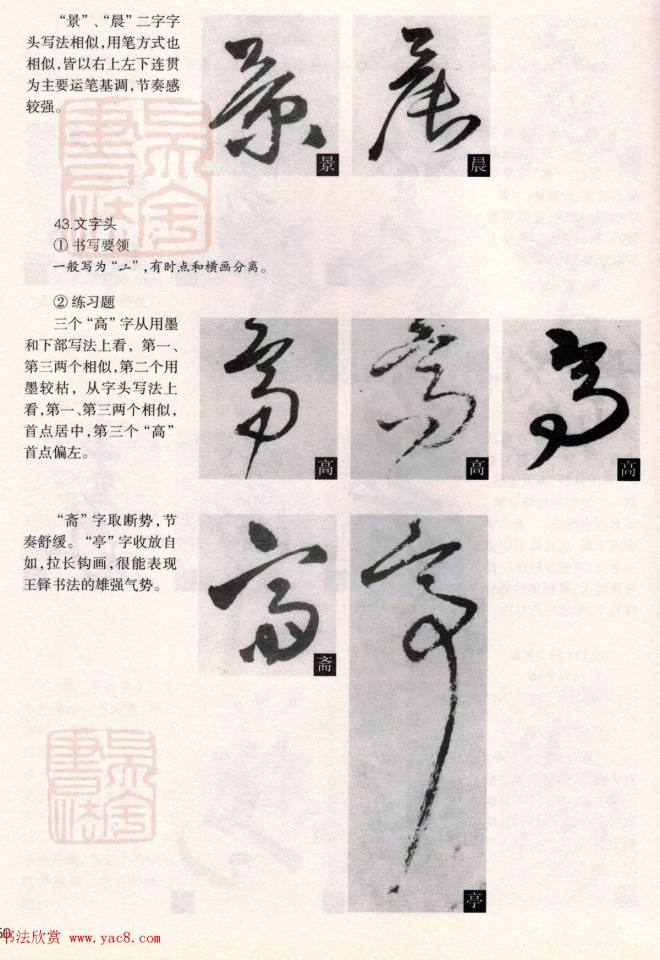 “景”、“晨”二字字
头写法相似,用笔方式也
相似,皆以右上左下连贯
为主要运笔基调,节奏感
较强。
景
晨
43.文字头
① 书写要领
一般写为“亠”,有时点和横画分离。
② 练习题
三个“高”字从用墨
和下部写法上看，第一、
第三两个相似,第二个用
墨较枯，从字头写法上
看,第一、第三两个相似，
首点居中,第三个“高”
首点偏左。
高
高
高
“斋”字取断势，节
奏舒缓。“亭”字收放自
如,拉长钩画,很能表现
王铎书法的雄强气势。
斋
亭
书法欣赏 www.yac8.com